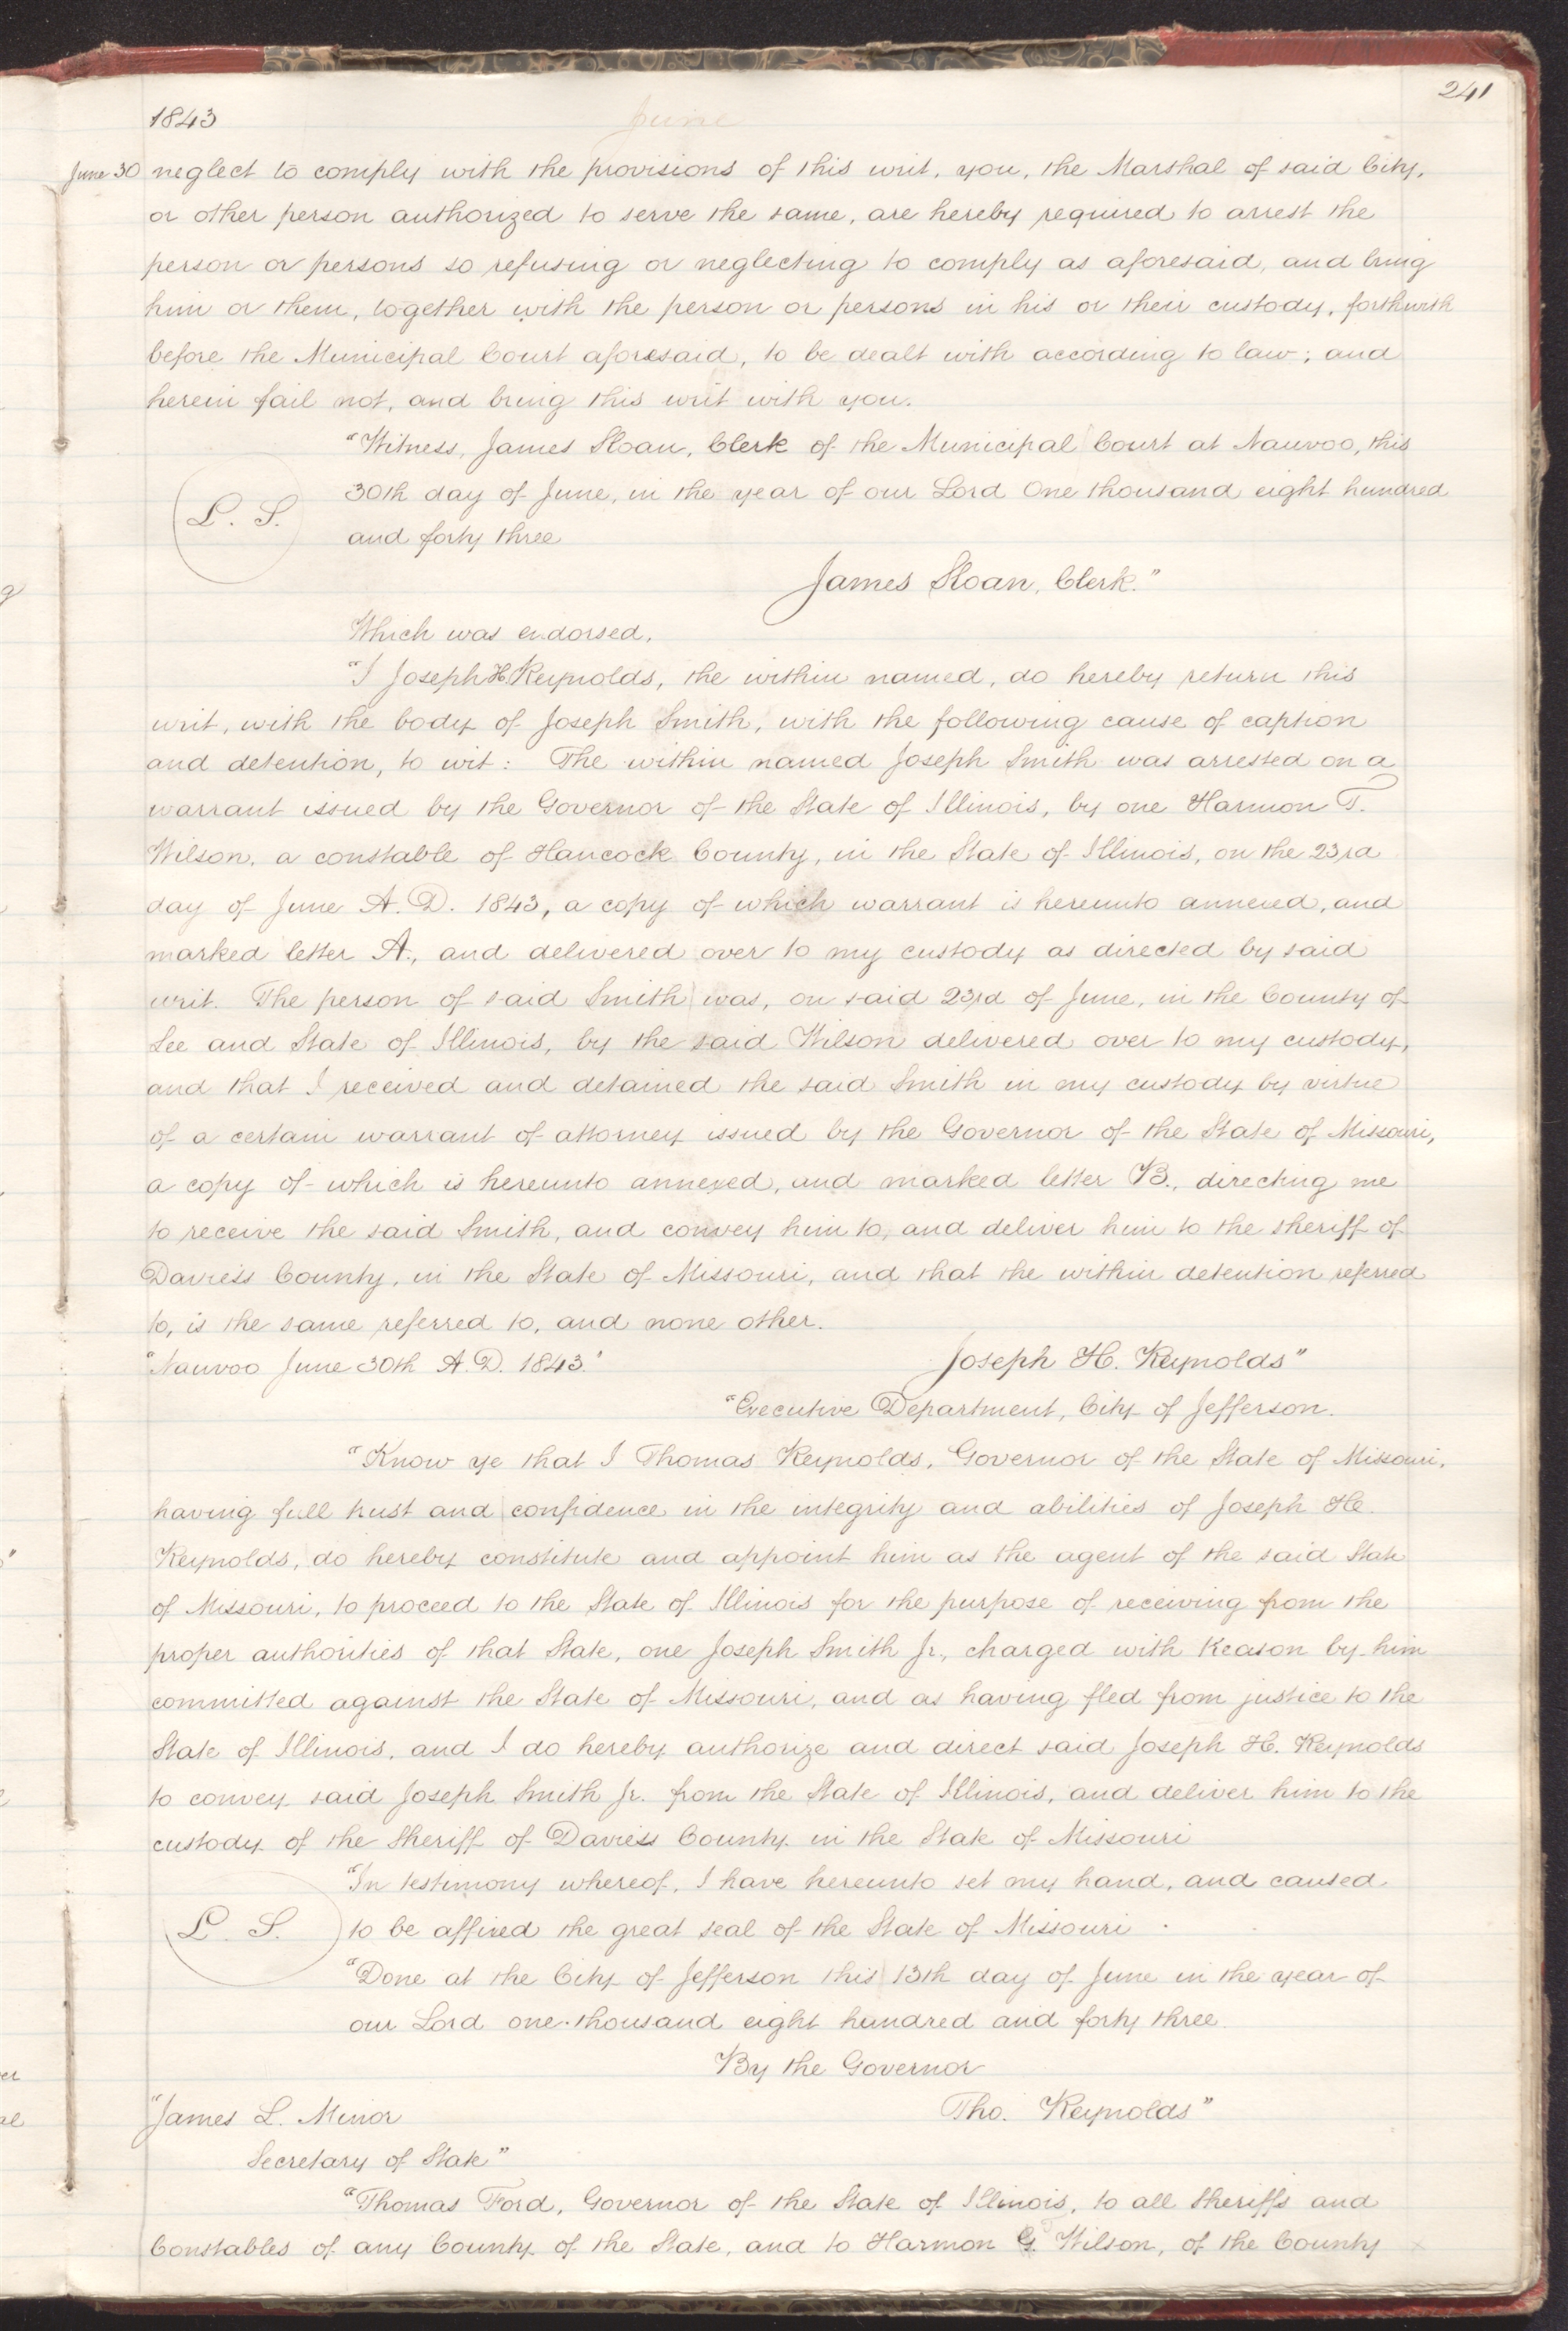 241
1843
June
June 30 neglect to comply with the provisions of this writ, you, the Marshal of said City,
or other person authorized to serve the same, are hereby required to arrest the
person or persons so refusing or neglecting to comply as aforesaid, and bring
him or them, together with the person or persons in his or their custody, forthwith
before the Municipal Court aforesaid, to be dealt with according to law; and
herein fail not, and bring this writ with you.
"Witness, James Sloan, Clerk of the Municipal Court at Nauvoo, this
30th day of June, in the year of our Lord One thousand eight hundred
L. S.
and forty three
James Sloan, Clerk."
Which was endorsed,
"I Joseph H. Reynolds, the within named, do hereby return this
writ, with the body of Joseph Smith, with the following cause of caption
and detention, to wit: The within named Joseph Smith was arrested on a
warrant issued by the Governor of the State of Illinois, by one Harmon T.
Wilson, a constable of Hancock County, in the State of Illinois, on the 23rd
day of June A. D. 1843, a copy of which warrant is hereunto annexed, and
marked letter A., and delivered over to my custody as directed by said
writ. The person of said Smith was, on said 23rd of June, in the County of
Lee and State of Illinois, by the said Wilson delivered over to my custody,
and that I received and detained the said Smith in my custody by virtue
of a certain warrant of attorney issued by the Governor of the State of Missouri,
a copy of which is hereunto annexed, and marked letter B., directing me
to receive the said Smith, and convey him to, and deliver him to the sheriff of
Daviess County, in the State of Missouri, and that the within detention referred
to, is the same referred to, and none other.
"Nauvoo June 30th A. D. 1843." Joseph H. Reynolds"
"Executive Department, City of Jefferson.
"Know ye that I Thomas Reynolds, Governor of the State of Missouri,
having full trust and confidence in the integrity and abilities of Joseph H.
Reynolds, do hereby constitute and appoint him as the agent of the said State
of Missouri, to proceed to the State of Illinois for the purpose of receiving from the
proper authorities of that State, one Joseph Smith Jr., charged with treason by him
committed against the State of Missouri, and as having fled from justice to the
State of Illinois, and I do hereby authorize and direct said Joseph H. Reynolds
to convey said Joseph Smith Jr. from the State of Illinois, and deliver him to the
custody of the Sheriff of Daviess County in the State of Missouri
"In testimony whereof, I have hereunto set my hand, and caused
L. S. to be affixed the great seal of the State of Missouri
"Done at the City of Jefferson this 13th day of June in the year of
our Lord one thousand eight hundred and forty three.
By the Governor
"James L. Minor Tho. Reynolds"
Secretary of State"
"Thomas Ford, Governor of the State of Illinois, to all Sheriffs and
Constables of any County of the State, and to Harmon G. Wilson, of the County